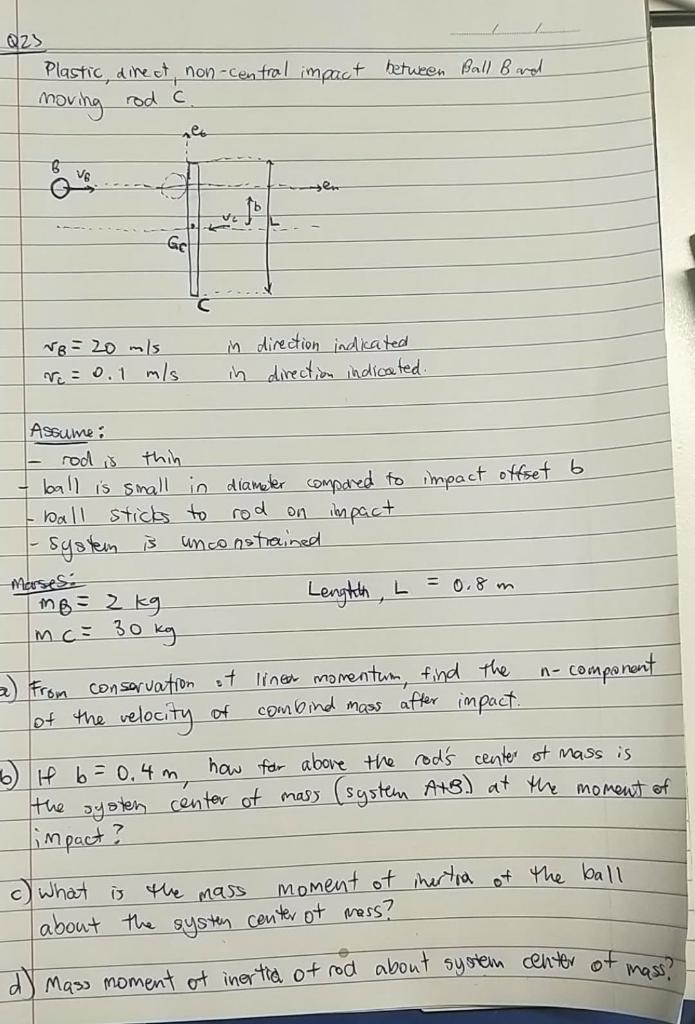 Q23
Plastic, direct, non-central impact between Ball B and
moving rod C.
et
B
vB
en
b
vc
L
Gc
C
vB = 20 m/s in direction indicated
vc = 0.1 m/s in direction indicated.
Assume:
- rod is thin
- ball is small in diameter compared to impact offset b
- ball sticks to rod on impact
- system is unconstrained
Masses:
mB = 2 kg Length, L = 0.8 m
mC = 30 kg
a) From conservation of linear momentum, find the n-component
of the velocity of combind mass after impact.
b) If b = 0.4 m, how far above the rod's center of mass is
the system center of mass (system A+B) at the moment of
impact?
c) What is the mass moment of inertia of the ball
about the system center of mass?
d) Mass moment of inertia of rod about system center of mass?